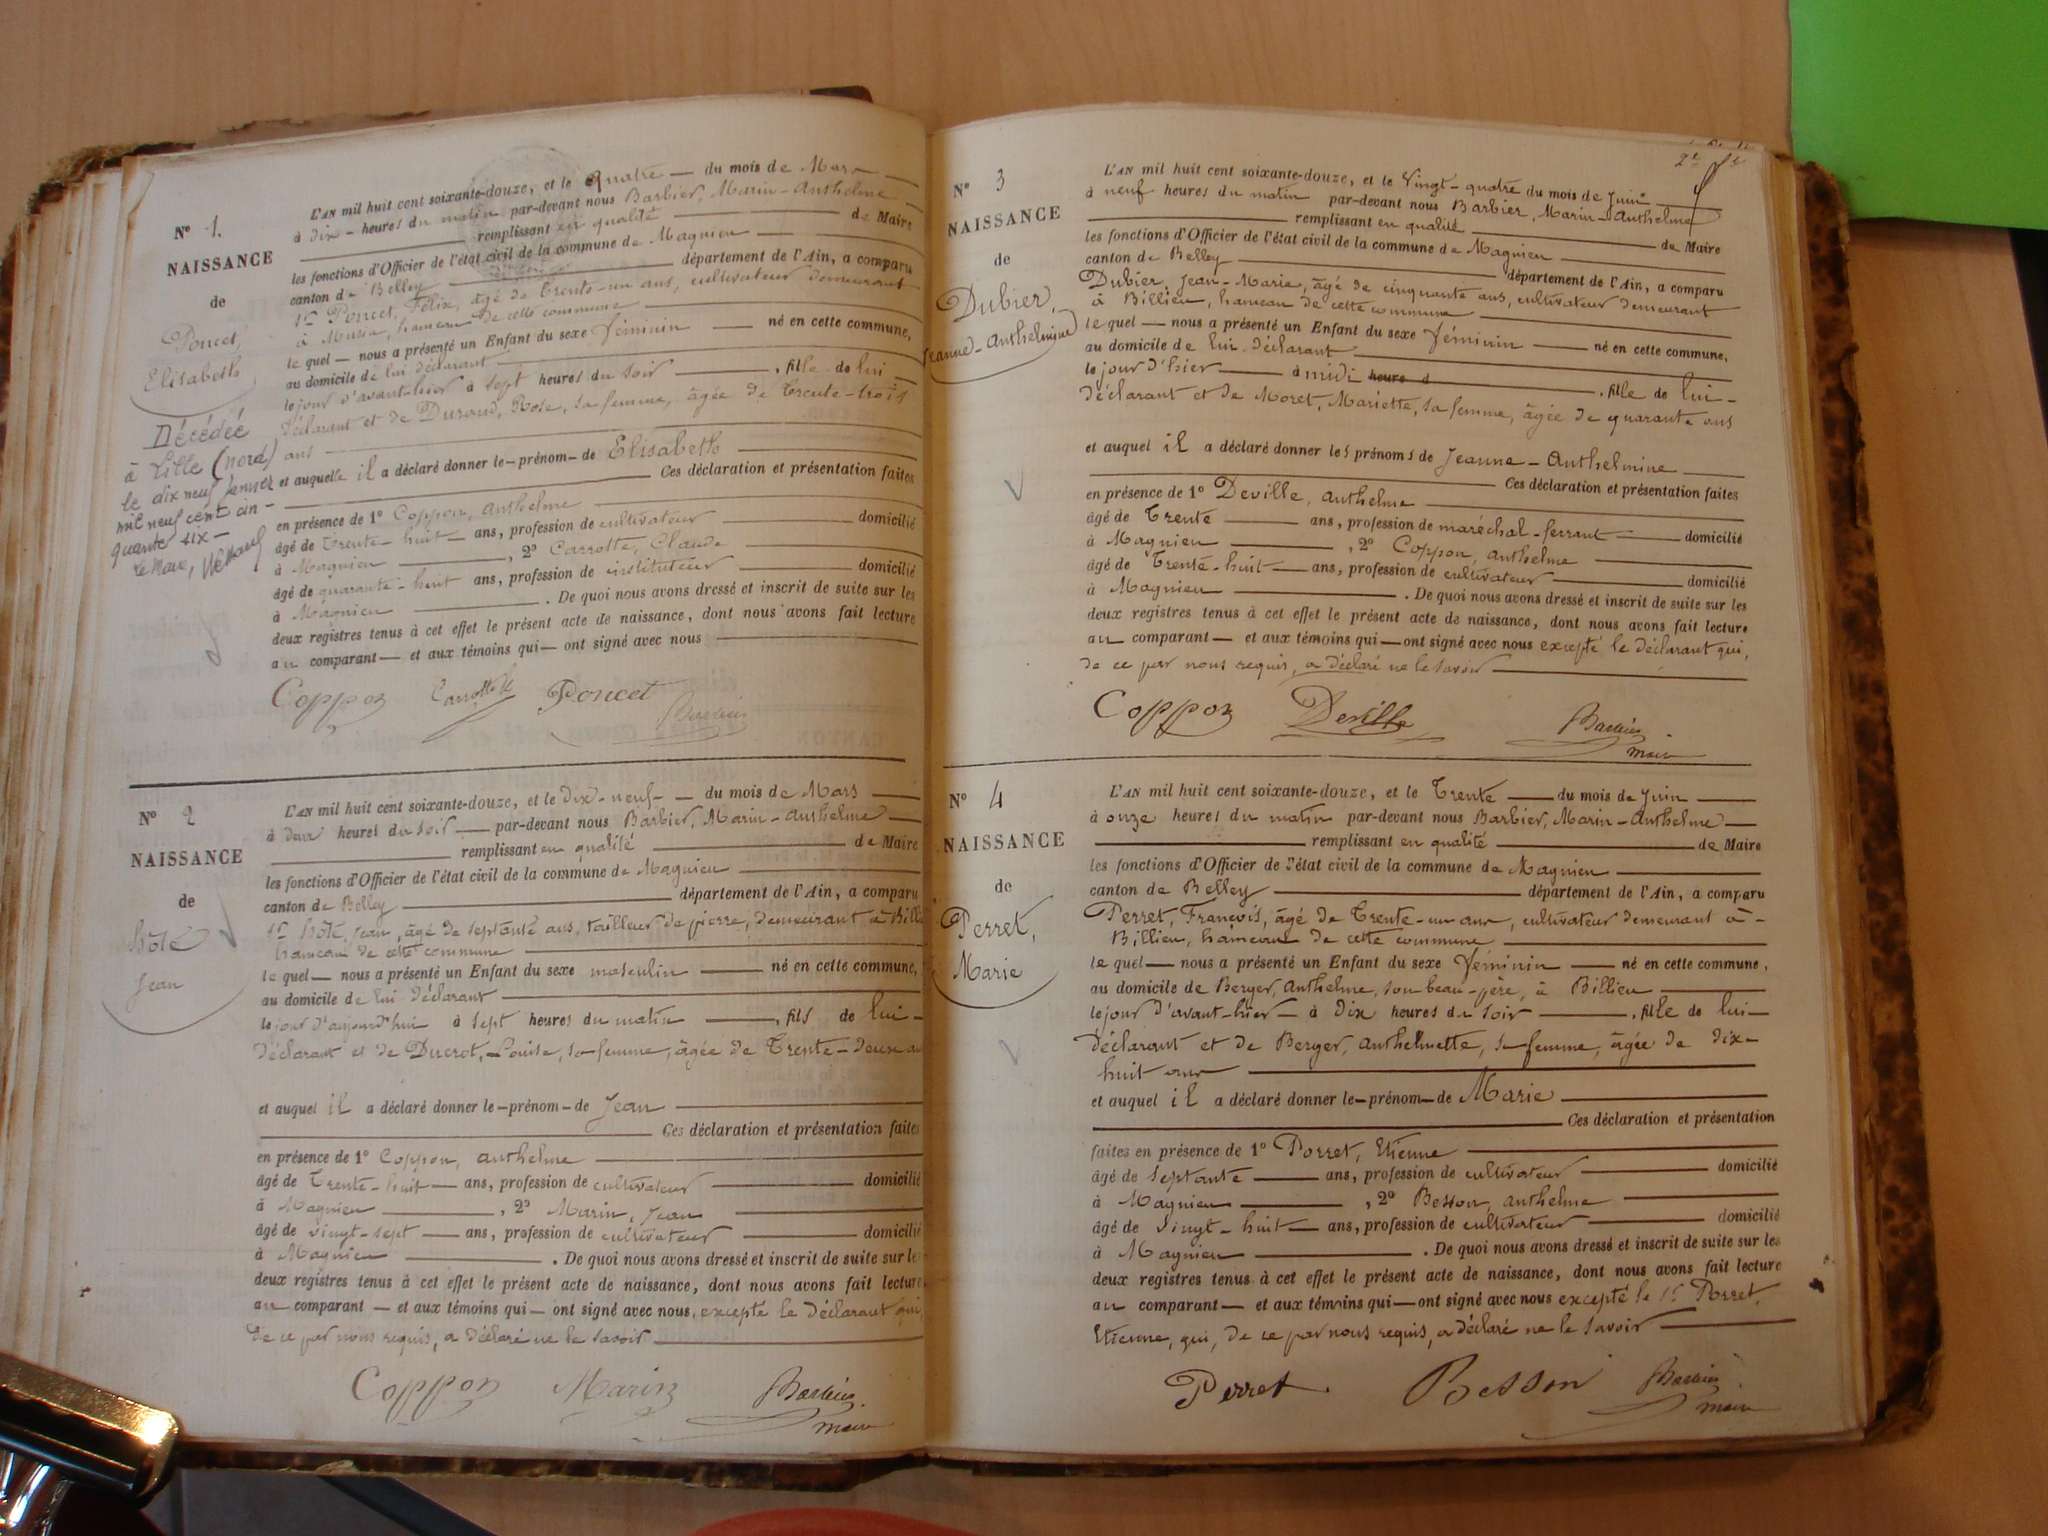 N° 1.
NAISSANCE
de
Poncet,
Elisabeth
Décédée
à Lille (nord)
le dix neuf janvier
mil neuf cent cin-
quante six -
Le Maire,
L'AN mil huit cent soixante-douze, et le quatre — du mois de Mars —
à dix - heures du matin par-devant nous Barbier, Marin-Anthelme
remplissant en qualité — de Maire
les fonctions d'Officier de l'état civil de la commune de Magnieu —
canton de Belley — département de l'Ain, a comparu
Sr Poncet, Félix, âgé de trente-un ans, cultivateur demeurant
à Musin, hameau de cette commune —
lequel — nous a présenté un Enfant du sexe féminin — né en cette commune,
au domicile de lui déclarant —
le jour d'avant-hier à sept heures du soir — , fille de lui
déclarant et de Durand, Rose, sa femme, âgée de trente-trois
ans —
et auquelle il a déclaré donner le-prénom-de Elisabeth
— Ces déclaration et présentation faites
en présence de 1° Coppon, anthelme —
âgé de trente-huit — ans, profession de cultivateur — domicilié
à Magnieu — , 2° Carrotte, Claude —
âgé de quarante-huit ans, profession de instituteur — domicilié
à Magnieu — . De quoi nous avons dressé et inscrit de suite sur les
deux registres tenus à cet effet le présent acte de naissance, dont nous avons fait lecture
au comparant — et aux témoins qui — ont signé avec nous —
Coppon Carrotte Poncet Barbier
N° 2
NAISSANCE
de
hôte
Jean
L'AN mil huit cent soixante-douze, et le dix-neuf — du mois de Mars —
à deux heures du soir — par-devant nous Barbier, Marin-Anthelme —
remplissant en qualité — de Maire
les fonctions d'Officier de l'état civil de la commune de Magnieu —
canton de Belley — département de l'Ain, a comparu
Sr hôte, Jean, âgé de septante ans, tailleur de pierre, demeurant à Bill
hameau de cette commune —
lequel — nous a présenté un Enfant du sexe masculin — né en cette commune,
au domicile de lui déclarant —
le jour d'aujourd'hui à sept heures du matin — , fils de lui -
déclarant et de Ducrot, Louise, sa femme, âgée de trente-deux an
et auquel il a déclaré donner le-prénom-de Jean —
— Ces déclaration et présentation faites
en présence de 1° Coppon, anthelme —
âgé de trente-huit — ans, profession de cultivateur — domicilié
à Magnieu — , 2° Marin, Jean —
âgé de vingt-sept — ans, profession de cultivateur — domicilié
à Magnieu — . De quoi nous avons dressé et inscrit de suite sur les
deux registres tenus à cet effet le présent acte de naissance, dont nous avons fait lecture
au comparant — et aux témoins qui — ont signé avec nous, excepté le déclarant qui,
de ce par nous requis, a déclaré ne le savoir —
Coppon Marin Barbier
maire
N° 3
NAISSANCE
de
Dubier,
Jeanne-Anthelmine
L'AN mil huit cent soixante-douze, et le vingt-quatre du mois de Juin —
à neuf heures du matin par-devant nous Barbier, Marin-Anthelme
— remplissant en qualité — de Maire
les fonctions d'Officier de l'état civil de la commune de Magnieu —
canton de Belley — département de l'Ain, a comparu
Dubier, Jean-Marie, âgé de cinquante ans, cultivateur demeurant
à Billieu, hameau de cette commune —
lequel — nous a présenté un Enfant du sexe féminin — né en cette commune,
au domicile de lui déclarant —
le jour d'hier — à midi heure d — , fille de lui -
déclarant et de Moret, Mariette, sa femme, âgée de quarante ans
et auquel il a déclaré donner les prénoms de Jeanne-Anthelmine —
— Ces déclaration et présentation faites
en présence de 1° Deville, anthelme —
âgé de trente — ans, profession de maréchal-ferrant — domicilié
à Magnieu — , 2° Coppon, anthelme —
âgé de trente-huit — ans, profession de cultivateur — domicilié
à Magnieu — . De quoi nous avons dressé et inscrit de suite sur les
deux registres tenus à cet effet le présent acte de naissance, dont nous avons fait lecture
au comparant — et aux témoins qui — ont signé avec nous excepté le déclarant qui,
de ce par nous requis, a déclaré ne le savoir —
Coppon Deville Barbier
maire
N° 4
NAISSANCE
de
Perret,
Marie
L'AN mil huit cent soixante-douze, et le trente — du mois de Juin —
à onze heures du matin par-devant nous Barbier, Marin-Anthelme —
— remplissant en qualité — de Maire
les fonctions d'Officier de l'état civil de la commune de Magnieu —
canton de Belley — département de l'Ain, a comparu
Perret, François, âgé de trente-un ans, cultivateur demeurant à -
Billieu, hameau de cette commune —
lequel — nous a présenté un Enfant du sexe féminin — né en cette commune,
au domicile de Berger, Anthelme, son beau-père, à Billieu —
le jour d'avant-hier — à dix heures du soir — , fille de lui —
déclarant et de Berger, Anthelmette, sa femme, âgée de dix-
huit ans —
et auquel il a déclaré donner le-prénom-de Marie —
— Ces déclaration et présentation
faites en présence de 1° Porret, Etienne —
âgé de septante — ans, profession de cultivateur — domicilié
à Magnieu — , 2° Besson, anthelme —
âgé de vingt-huit — ans, profession de cultivateur — domicilié
à Magnieu — . De quoi nous avons dressé et inscrit de suite sur les
deux registres tenus à cet effet le présent acte de naissance, dont nous avons fait lecture
au comparant — et aux témoins qui — ont signé avec nous excepté le Sr Porret,
Etienne, qui, de ce par nous requis, a déclaré ne le savoir —
Perret Besson Barbier
maire